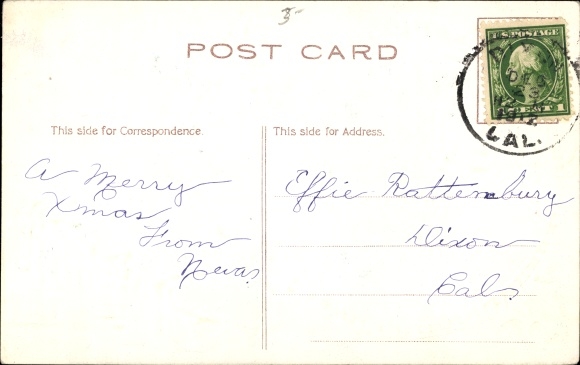 3-
POST CARD
U.S. POSTAGE
1
DEC
1912
CAL.
This side for Correspondence.
This side for Address.
A Merry
Xmas
From
Neva.
Effie Rattenbury
Dixon
Cal.